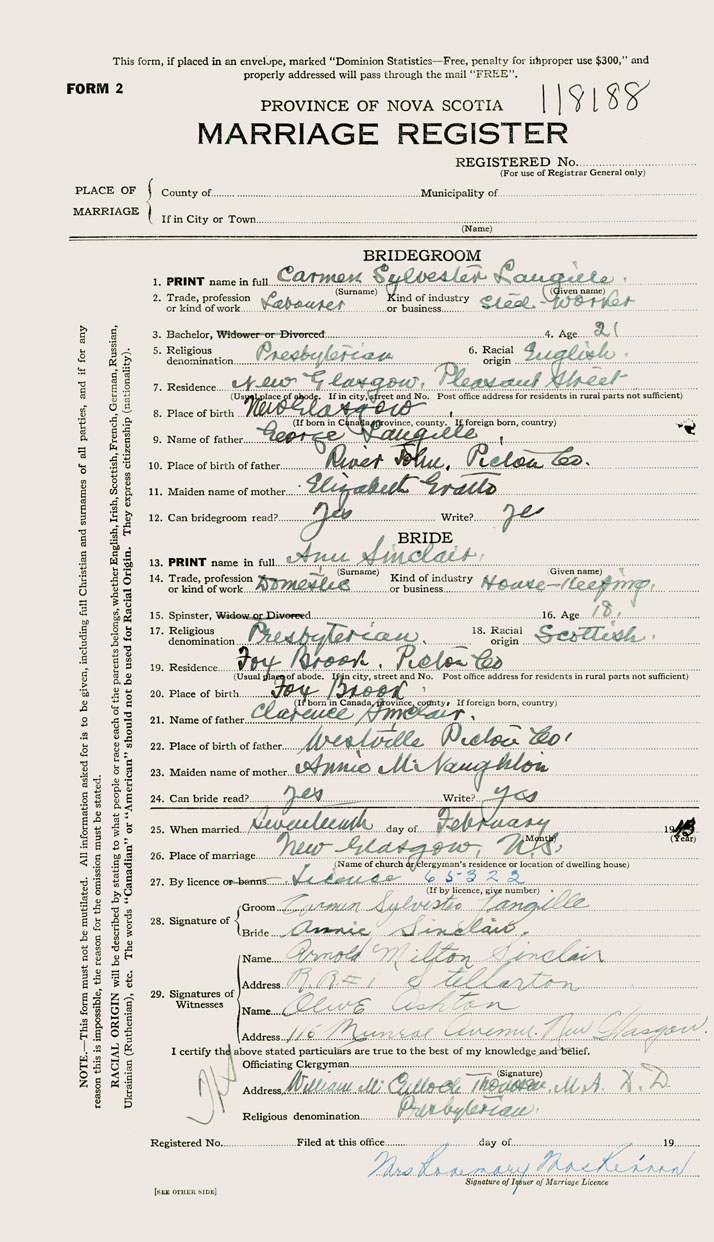 This form, if placed in an envelope, marked "Dominion Statistics—Free, penalty for improper use $300," and
properly addressed will pass through the mail "FREE".
FORM 2
118188
PROVINCE OF NOVA SCOTIA
MARRIAGE REGISTER
REGISTERED No.
(For use of Registrar General only)
PLACE OF MARRIAGE
County of Municipality of
If in City or Town
(Name)
BRIDEGROOM
1. PRINT name in full Carmen Sylvester Langille.
(Surname) (Given name)
2. Trade, profession or kind of work Labourer Kind of industry or business Steel-Worker
3. Bachelor, Widower or Divorced 4. Age 21
5. Religious denomination Presbyterian 6. Racial origin English.
7. Residence New Glasgow, Pleasant Street
(Usual place of abode. If in city, street and No. Post office address for residents in rural parts not sufficient)
8. Place of birth New Glasgow
(If born in Canada, province, county. If foreign born, country)
9. Name of father George Langille
10. Place of birth of father River John, Pictou Co.
11. Maiden name of mother Elizabeth Gratto
12. Can bridegroom read? Yes Write? Yes
BRIDE
13. PRINT name in full Ann Sinclair.
(Surname) (Given name)
14. Trade, profession or kind of work Domestic Kind of industry or business House-Keeping.
15. Spinster, Widow or Divorced 16. Age 18.
17. Religious denomination Presbyterian. 18. Racial origin Scottish.
19. Residence Fox Brook, Pictou Co
(Usual place of abode. If in city, street and No. Post office address for residents in rural parts not sufficient)
20. Place of birth Fox Brook
(If born in Canada, province, county. If foreign born, country)
21. Name of father Clarence Sinclair.
22. Place of birth of father Westville Pictou Co.
23. Maiden name of mother Annie McNaughton
24. Can bride read? Yes Write? Yes
25. When married Seventeenth day of February 19
(Month) (Year)
26. Place of marriage New Glasgow, N.S.
(Name of church or clergyman's residence or location of dwelling house)
27. By licence or banns Licence 65322
(If by licence, give number)
28. Signature of
Groom Carmen Sylvester Langille
Bride Annie Sinclair.
29. Signatures of Witnesses
Name Arnold Milton Sinclair
Address R.R#1 Stellarton
Name Olive Ashton
Address 116 Munroe Avenue. New Glasgow.
I certify the above stated particulars are true to the best of my knowledge and belief.
Officiating Clergyman
(Signature)
Address William McCulloch Thomson, M.A. D.D
Religious denomination Presbyterian.
Registered No. Filed at this office day of 19
Mrs Rosemary MacKinnon
Signature of Issuer of Marriage Licence
[SEE OTHER SIDE]
NOTE.—This form must not be mutilated. All information asked for is to be given, including full Christian and surnames of all parties, and if for any
reason this is impossible, the reason for the omission must be stated.
RACIAL ORIGIN will be described by stating to what people or race each of the parents belongs, whether English, Irish, Scottish, French, German, Russian,
Ukrainian (Ruthenian), etc. The words "Canadian" or "American" should not be used for Racial Origin. They express citizenship (nationality).